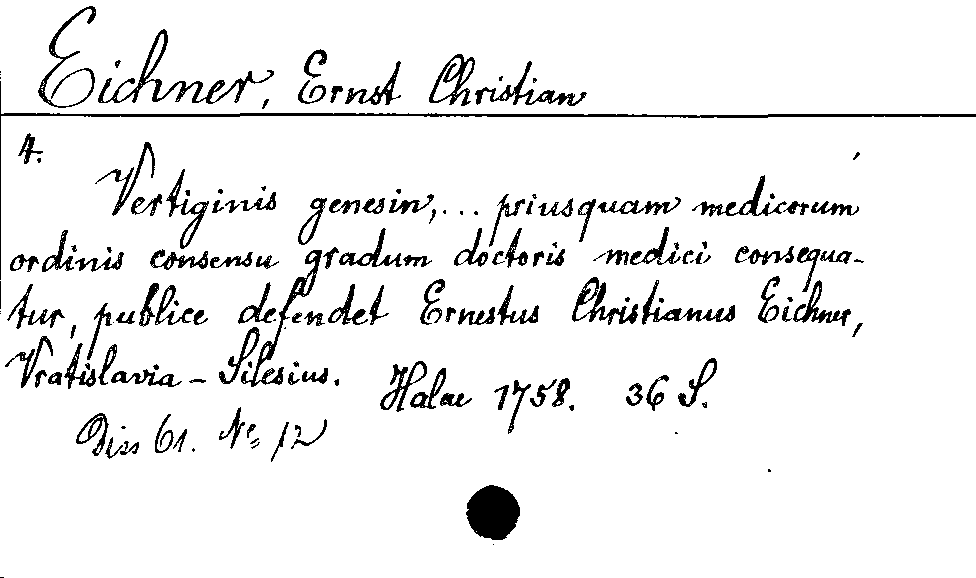 Eichner, Ernst Christian
4.
Vertiginis genesin,... priusquam medicorum
ordinis consensu gradum doctoris medici consequa-
tur, publice defendet Ernestus Christianus Eichner,
Vratislavia - Silesius.
Halae 1758. 36 S.
Diss 61. No 12